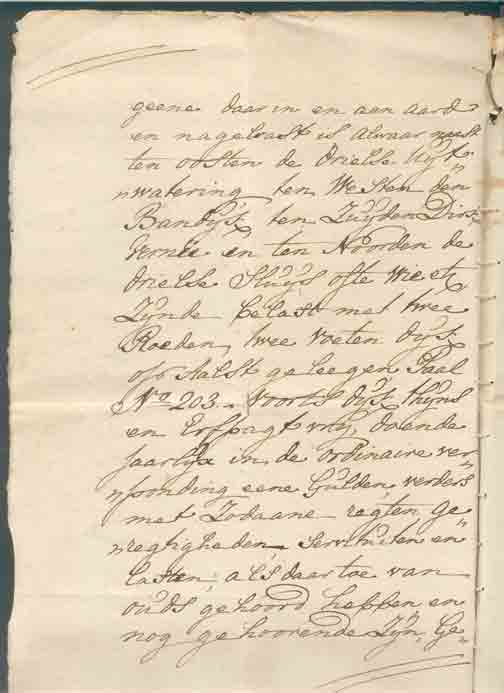 geene daar in en aan aard
en nagelvast is alwaar naast
ten oosten de Drielse Uyt„
„watering ten Westen den
Bandyk, ten Zuyden Dirk
Vernie en ten Noorden de
Drielse Sluys ofte wie etz
Zynde belast met twee
Roeden, twee voeten dyk,
op Aalst geleegen Paal
No 203. Voorts dyk, thyns
en Erfpagt vry, doende
jaarlyx in de ordinaire ver„
„ponding eene Gulden, verders
met Zodaane regten ge„
„regtigheden, servituten en
lasten, als daar toe van
ouds gehoord hebben en
nog gehoorende Zyn, Ge„